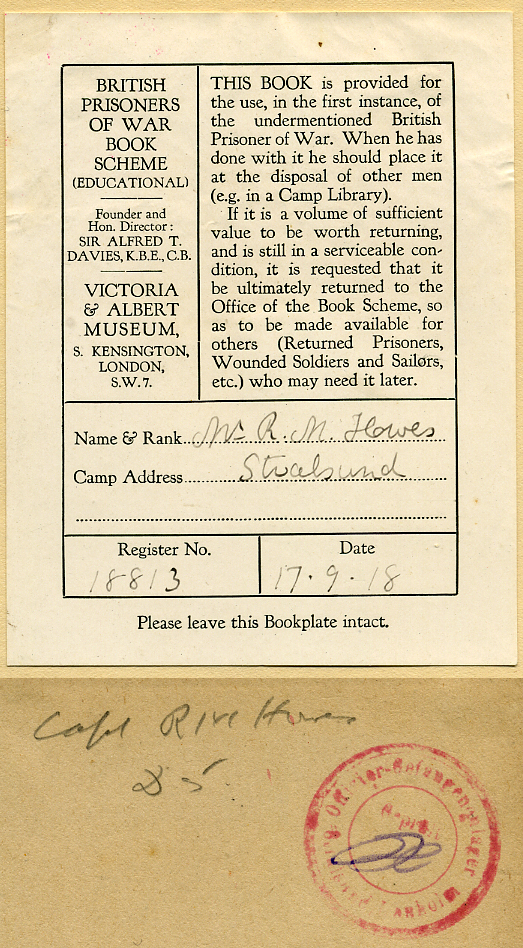 BRITISH
PRISONERS
OF WAR
BOOK
SCHEME
(EDUCATIONAL)
Founder and
Hon. Director:
SIR ALFRED T.
DAVIES, K.B.E., C.B.
VICTORIA
& ALBERT
MUSEUM,
S. KENSINGTON,
LONDON,
S.W.7.
THIS BOOK is provided for
the use, in the first instance, of
the undermentioned British
Prisoner of War. When he has
done with it he should place it
at the disposal of other men
(e.g. in a Camp Library).
If it is a volume of sufficient
value to be worth returning,
and is still in a serviceable con-
dition, it is requested that it
be ultimately returned to the
Office of the Book Scheme, so
as to be made available for
others (Returned Prisoners,
Wounded Soldiers and Sailors,
etc.) who may need it later.
Name & Rank Mr R. M. Howes
Camp Address Stralsund
Register No. Date
18813 17.9.18
Please leave this Bookplate intact.
Capt RM Howes
D 5
Offizier-Gefangenenlager